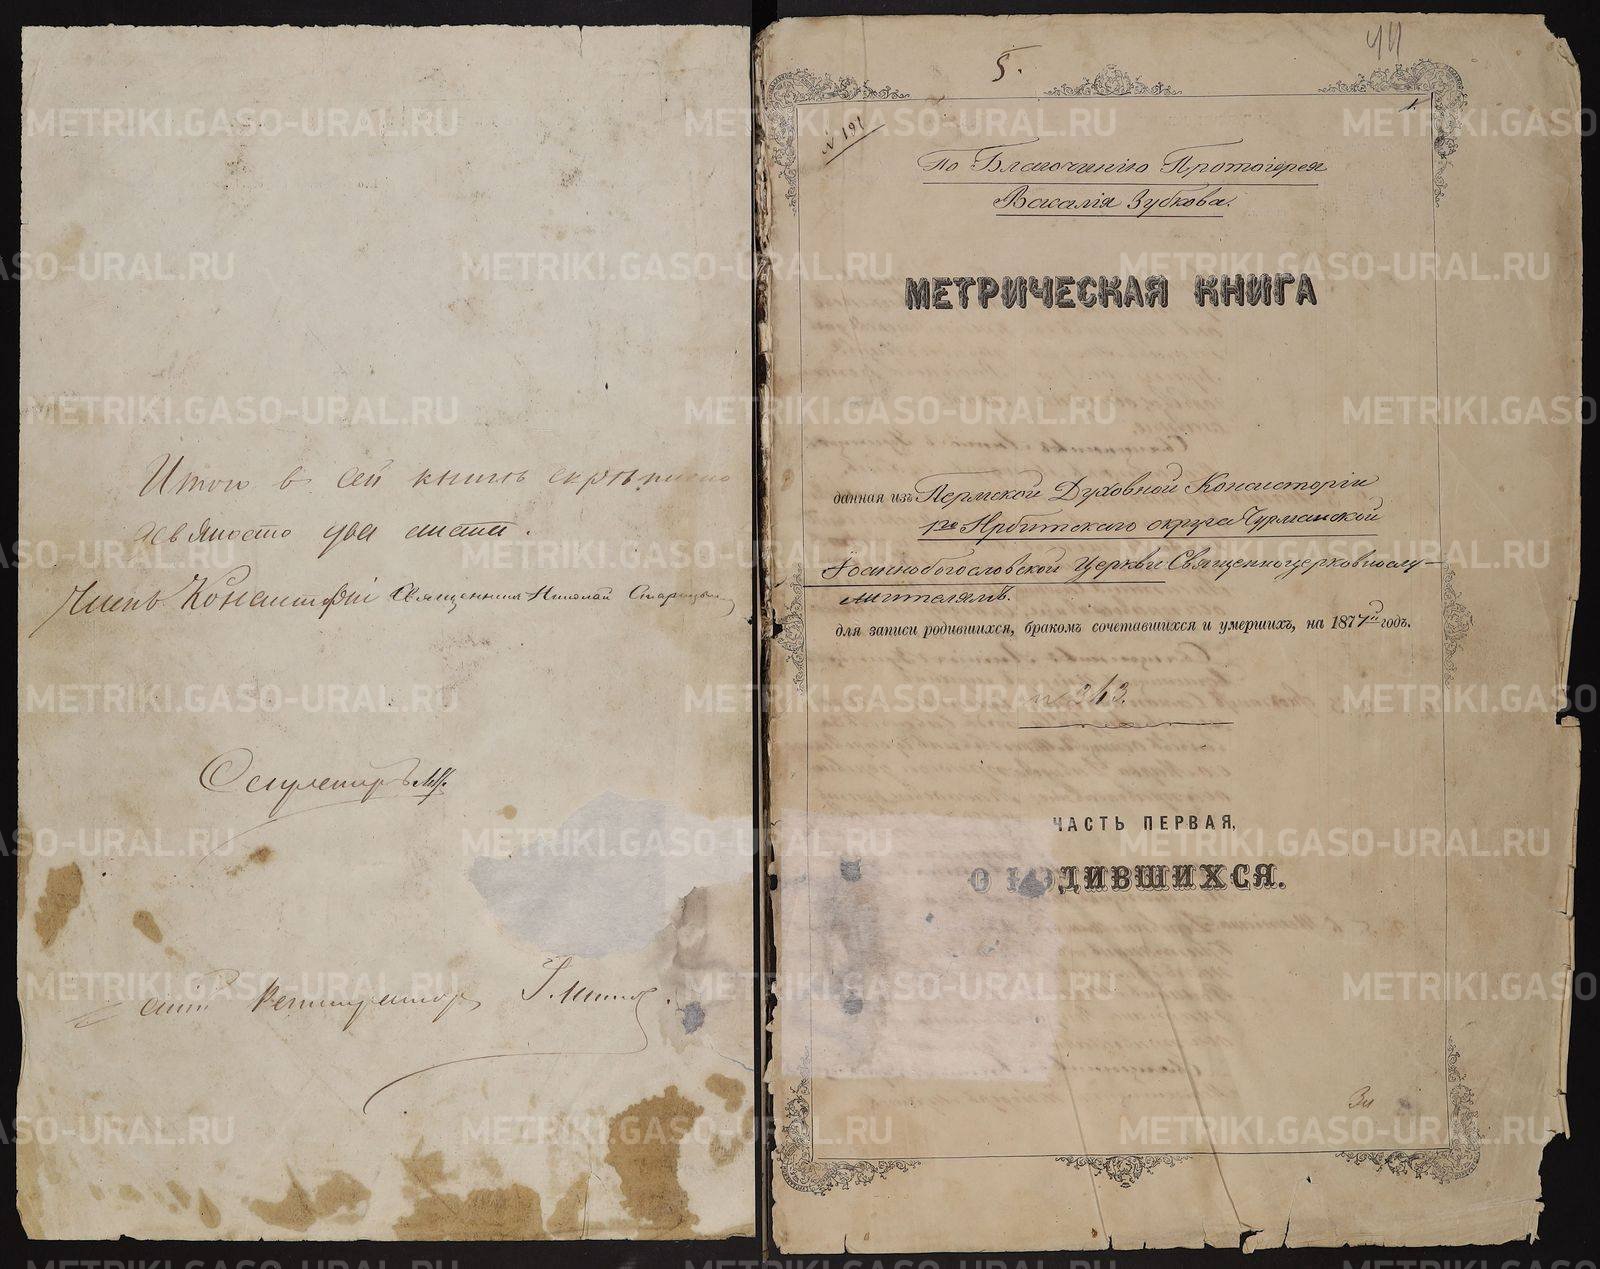 Итого в сей книгѣ скрѣплено
девяносто два листа.
Членъ Консисторіи Священникъ Николай
Секретарь
Регистраторъ
5.
44
1.
№ 191
По Благочинію Протоіерея
Василія Зубкова.
МЕТРИЧЕСКАЯ КНИГА
данная изъ Пермской Духовной Консисторіи
Ирбитскаго округа Чурманской
Іоаннобогословской Церкви Священноцерковнослу-
жителямъ.
для записи родившихся, бракомъ сочетавшихся и умершихъ, на 1877й годъ.
№ 343.
ЧАСТЬ ПЕРВАЯ,
О РОДИВШИХСЯ.
METRIKI.GASO-URAL.RU